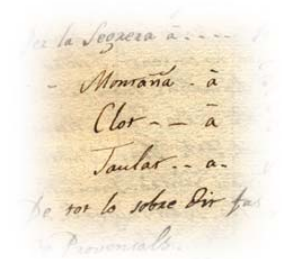 Per la Segrera à ----
- Montañá - à
Clot - - à
Taulat -- a-
De tot lo sobre Dit fas
Provensals.